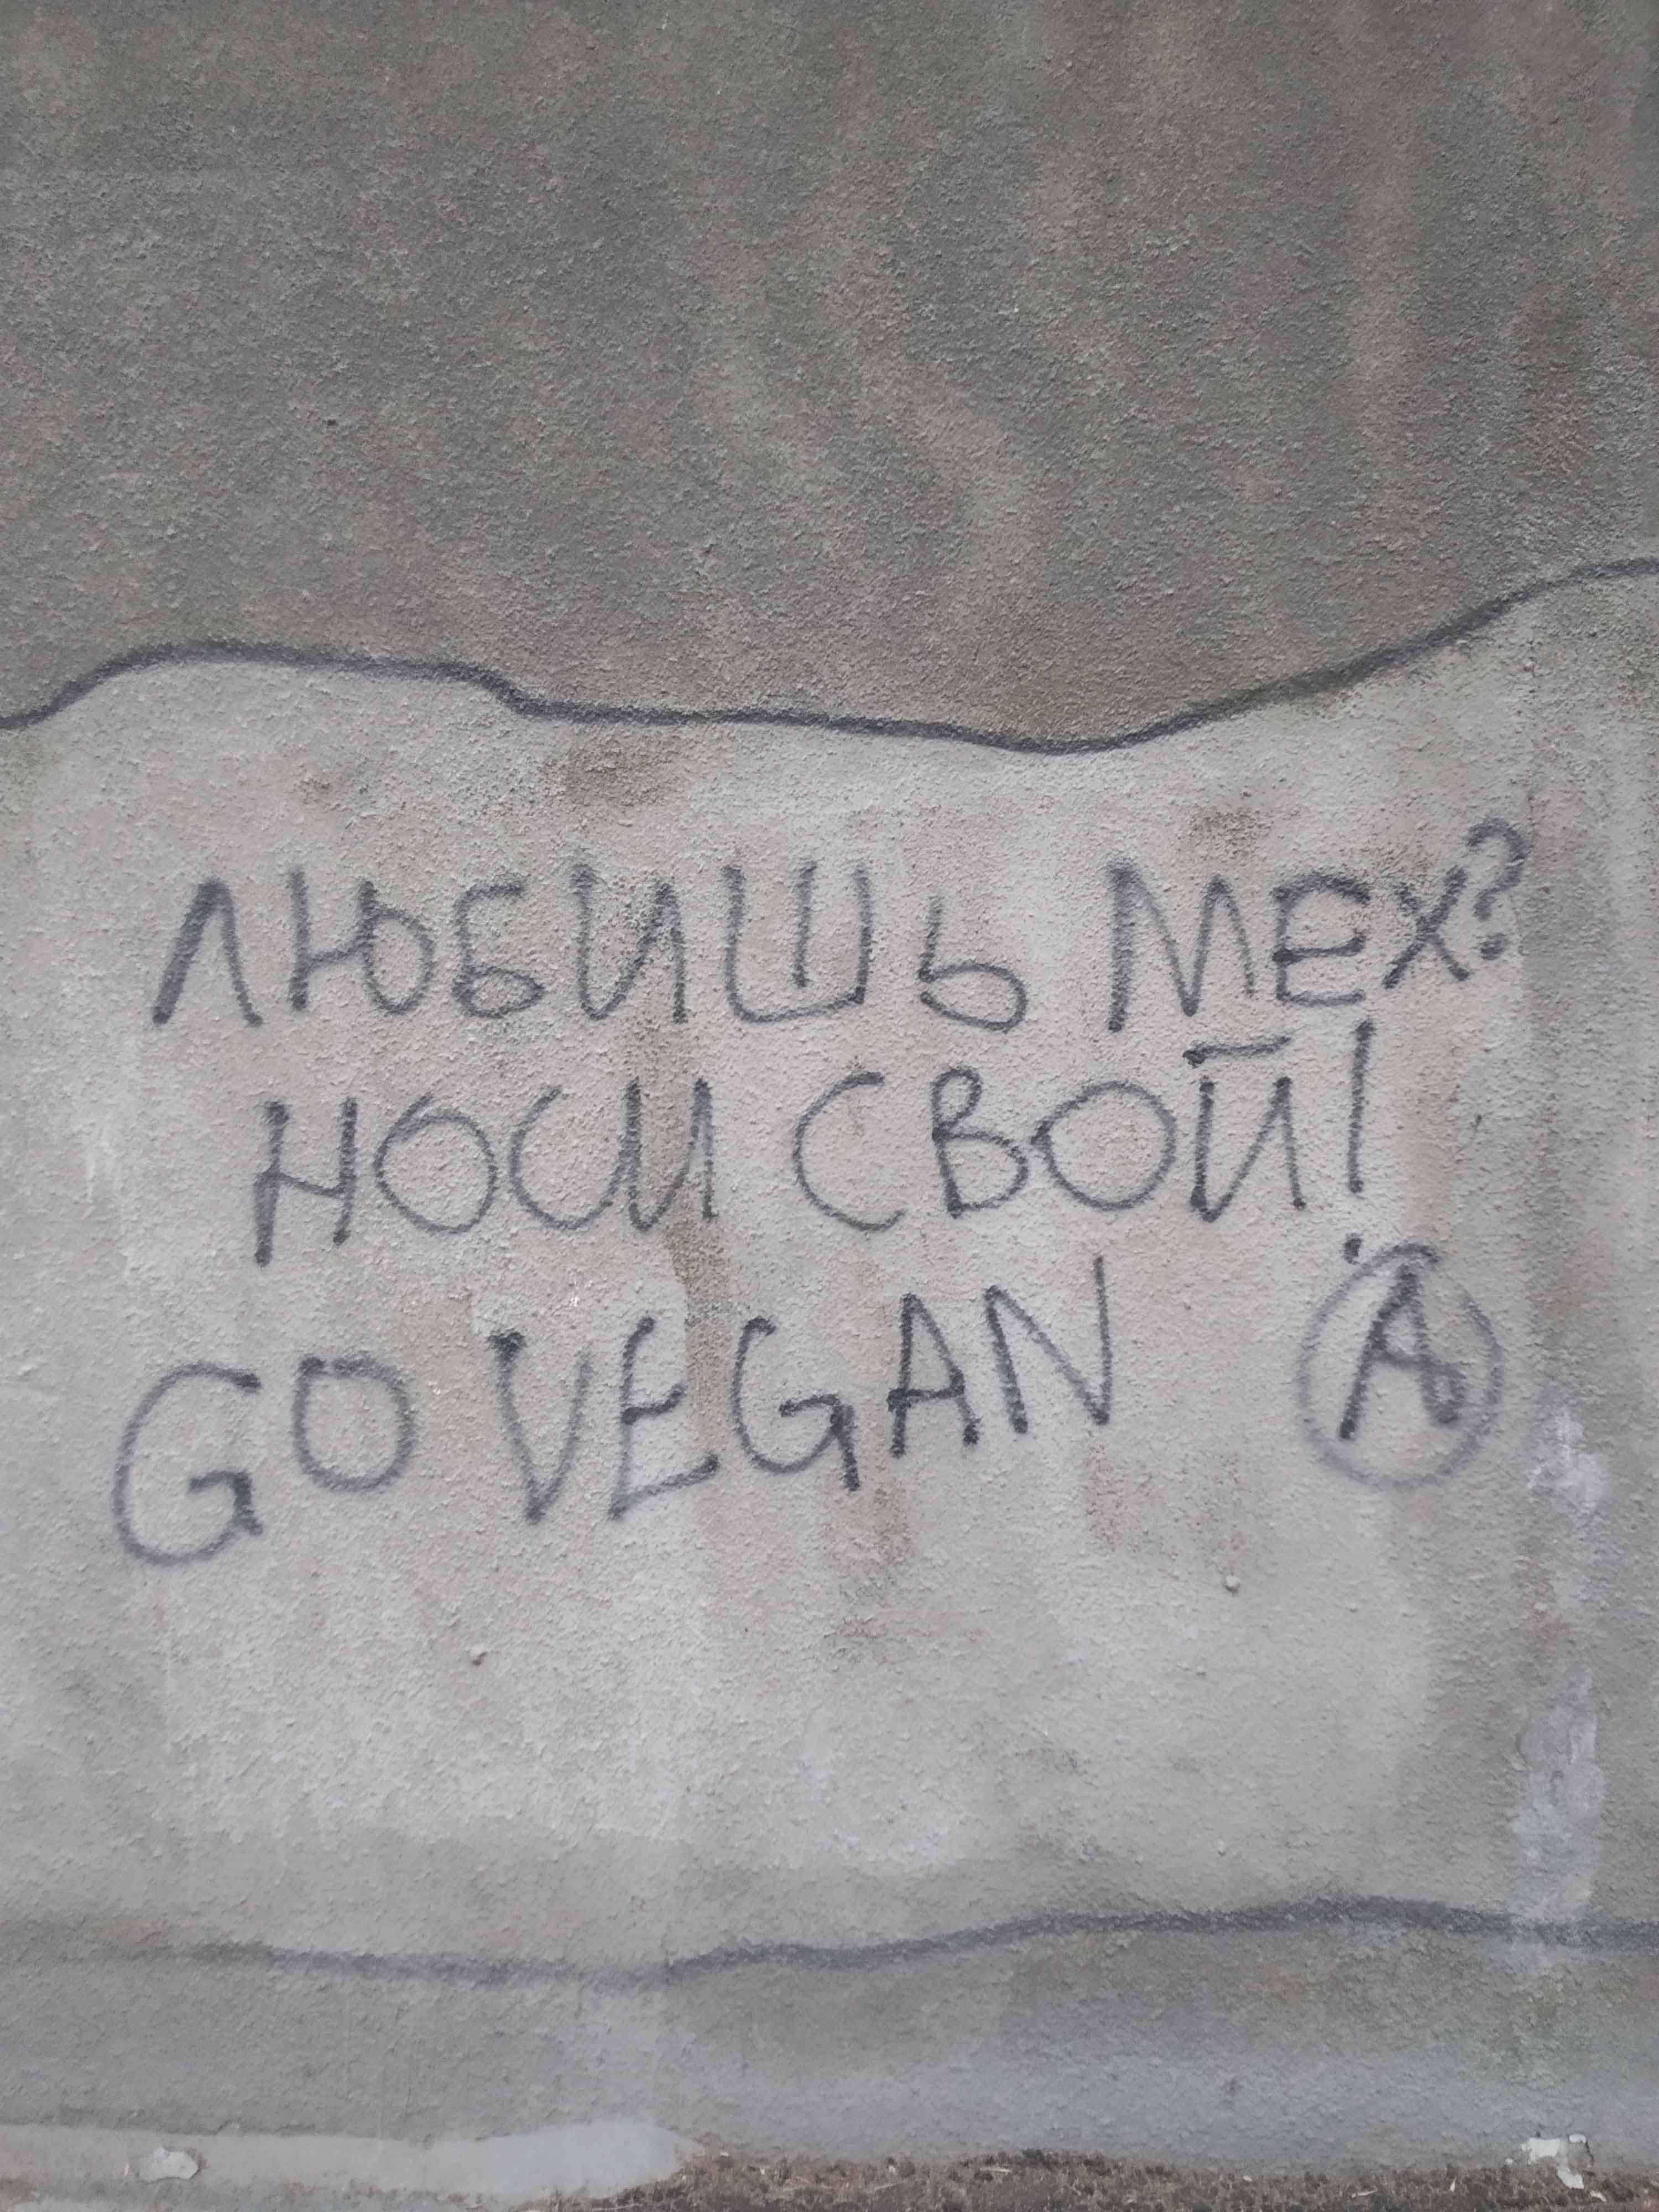 ЛЮБИШЬ МЕХ?
НОСИ СВОЙ!
GO VEGAN Ⓐ